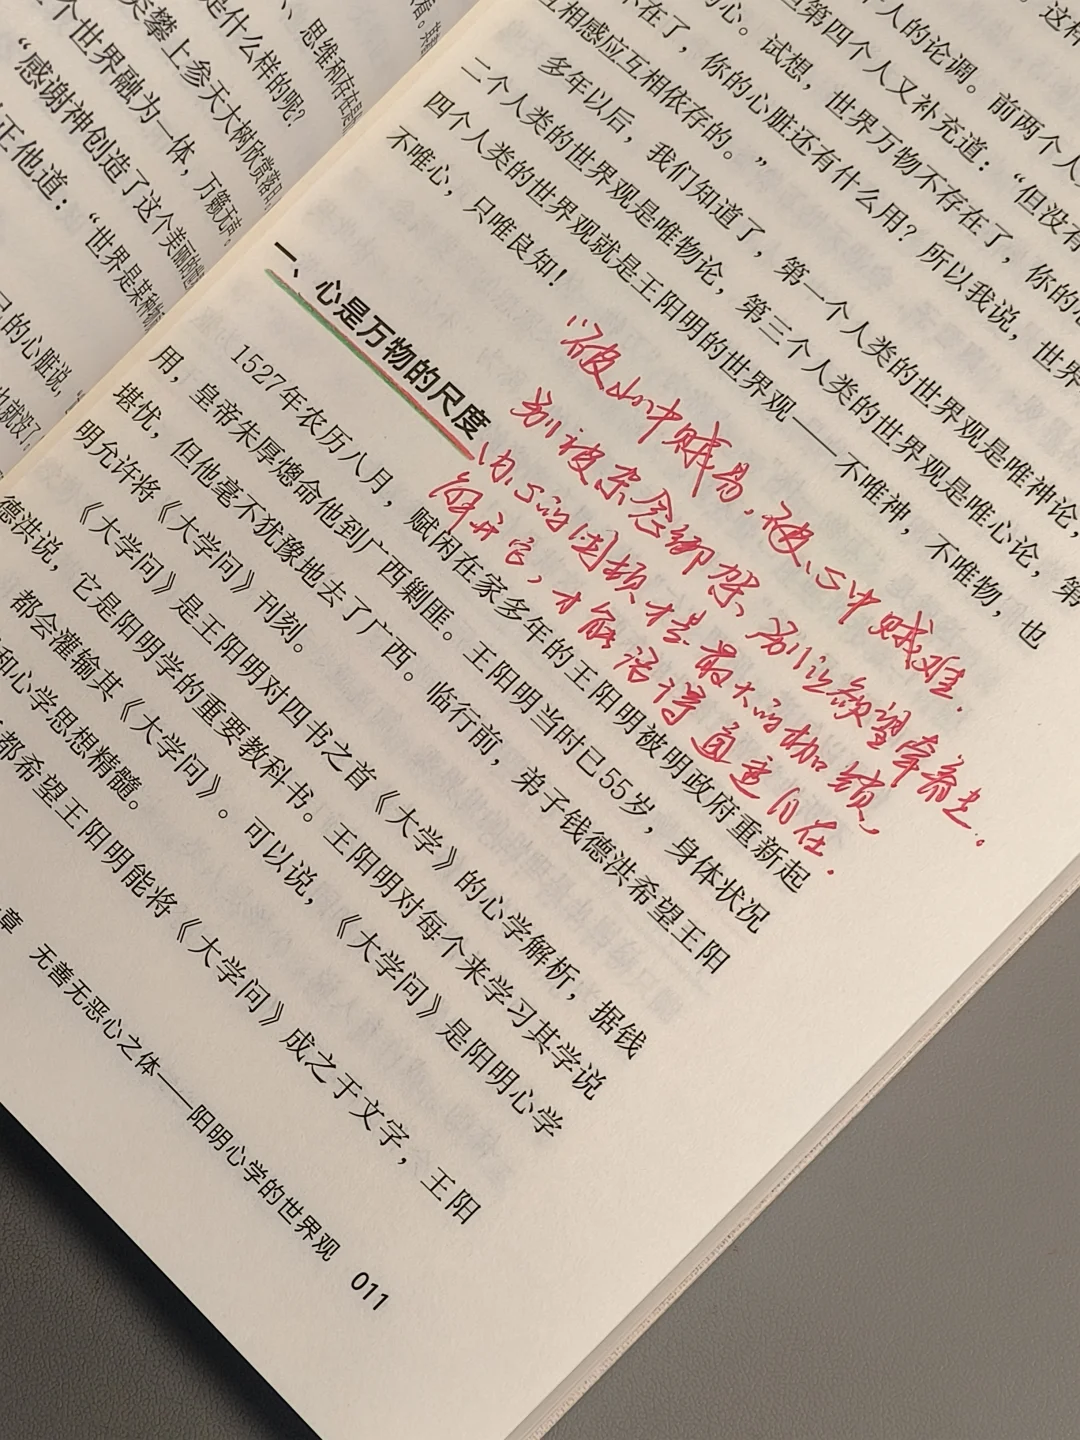 、思维和存在是
是什么样的呢？
类攀上参天大树欣赏落日
个世界融为一体，万籁无声。
“感谢神创造了这个美丽的世
正他道：“世界是某种物
己的心脏说，“
也就没了
。这样
人的论调。前两个人
第四个人又补充道：“但没有
的心。试想，世界万物不存在了，你的心
不在了，你的心脏还有什么用？所以我说，世界
互相感应互相依存的。”
多年以后，我们知道了，第一个人类的世界观是唯神论，
二个人类的世界观是唯物论，第三个人类的世界观是唯心论，第
四个人类的世界观就是王阳明的世界观——不唯神，不唯物，也
不唯心，只唯良知！
“破山中贼易，破心中贼难.
别被杂念绑架，别让欲望牵着走。
内心的困顿才是最大的枷锁，
解开它，才能活得通透自在.
一、心是万物的尺度
1527年农历八月，赋闲在家多年的王阳明被明政府重新起
用，皇帝朱厚熜命他到广西剿匪。王阳明当时已55岁，身体状况
堪忧，但他毫不犹豫地去了广西。临行前，弟子钱德洪希望王阳
明允许将《大学问》刊刻。
《大学问》是王阳明对四书之首《大学》的心学解析，据钱
德洪说，它是阳明学的重要教科书。王阳明对每个来学习其学说
都会灌输其《大学问》。可以说，《大学问》是阳明心学
和心学思想精髓。
都希望王阳明能将《大学问》成之于文字，王阳
章 无善无恶心之体——阳明心学的世界观 011